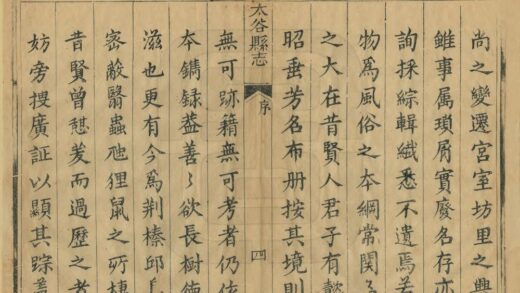 尚之變遷宮室坊里之興
雖事属瑣屑實廢名存亦
詢採綜輯纎悉不遺焉若
物爲風俗之本綱常関
之大在昔賢人君子有懿
昭垂芳名布册按其境則
太谷縣志
序
四
無可跡籍無可考者仍依
本鐫録益善〻欲長樹德
滋也更有今爲荆榛邱
宻蔽翳蟲虺狸鼠之所棲
昔賢曾憇爰而過歷之者
妨旁搜廣証以顯其踪